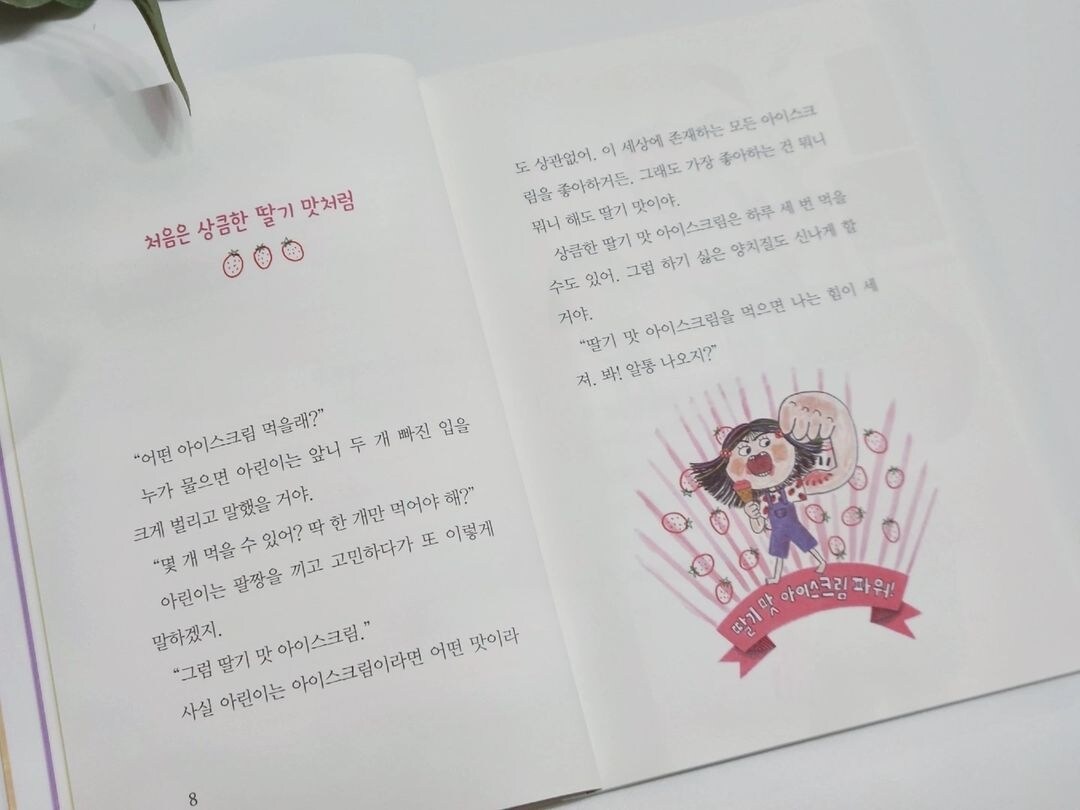 처음은 상큼한 딸기 맛처럼
“어떤 아이스크림 먹을래?”
누가 물으면 아린이는 앞니 두 개 빠진 입을
크게 벌리고 말했을 거야.
“몇 개 먹을 수 있어? 딱 한 개만 먹어야 해?”
아린이는 팔짱을 끼고 고민하다가 또 이렇게
말하겠지.
“그럼 딸기 맛 아이스크림.”
사실 아린이는 아이스크림이라면 어떤 맛이라
8
도 상관없어. 이 세상에 존재하는 모든 아이스크
림을 좋아하거든. 그래도 가장 좋아하는 건 뭐니
뭐니 해도 딸기 맛이야.
상큼한 딸기 맛 아이스크림은 하루 세 번 먹을
수도 있어. 그럼 하기 싫은 양치질도 신나게 할
거야.
“딸기 맛 아이스크림을 먹으면 나는 힘이 세
져. 봐! 알통 나오지?”
딸기 맛 아이스크림 파워!